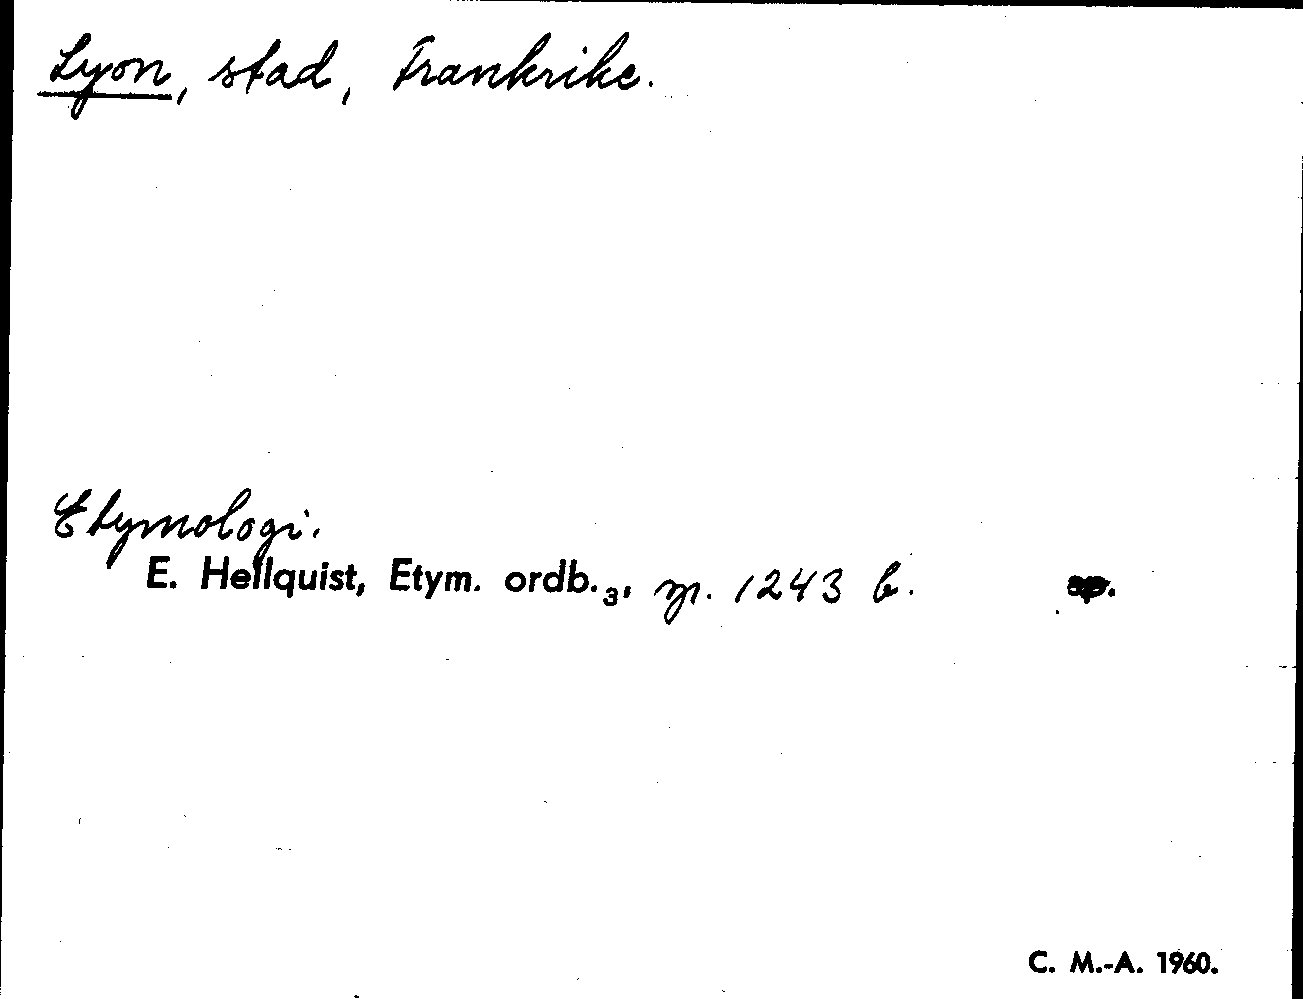 Lyon, stad, Frankrike.
Etymologi.
E. Hellquist, Etym. ordb.₃, p. 1243 b.
C. M.-A. 1960.